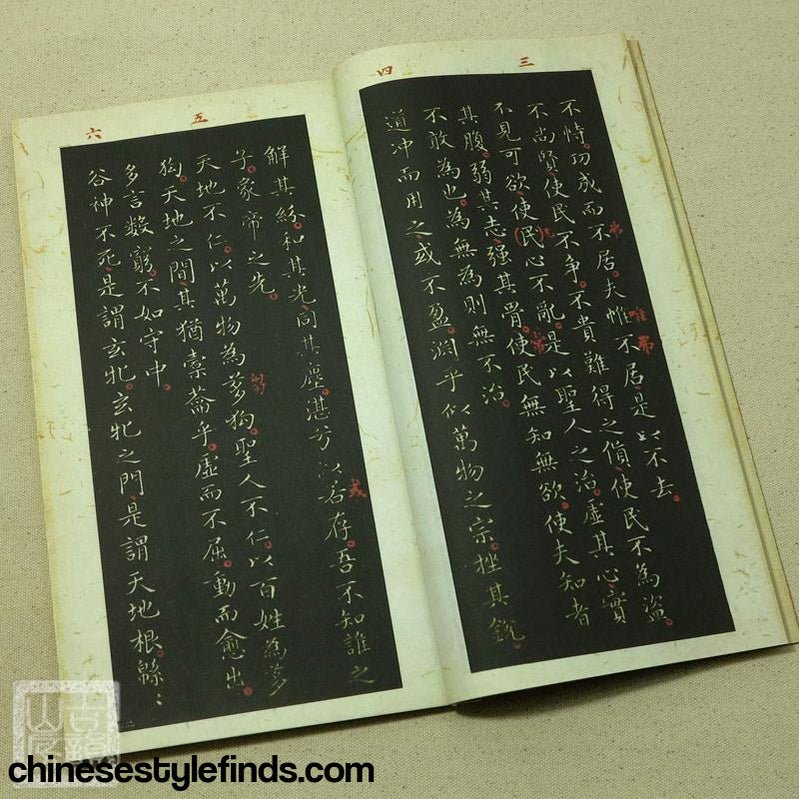 三
四
不恃。功成而不居。夫惟不居。是以不去。
不尚賢。使民不爭。不貴難得之貨。使民不為盜。
不見可欲。使民心不亂。是以聖人之治。虛其心。實
其腹。弱其志。强其骨。使民無知無欲。使夫知者
不敢為也。為無為則無不治。
道冲而用之。或不盈。淵乎似萬物之宗。挫其銳。
五
六
解其紛。和其光。同其塵。湛兮似若存。吾不知誰之
子。象帝之先。
天地不仁。以萬物為芻狗。聖人不仁。以百姓為芻
狗。天地之間。其猶橐籥乎。虛而不屈。動而愈出。
多言數窮。不如守中。
谷神不死。是謂玄牝。玄牝之門。是謂天地根。緜〻
唯
弗
或
chinesestylefinds.com